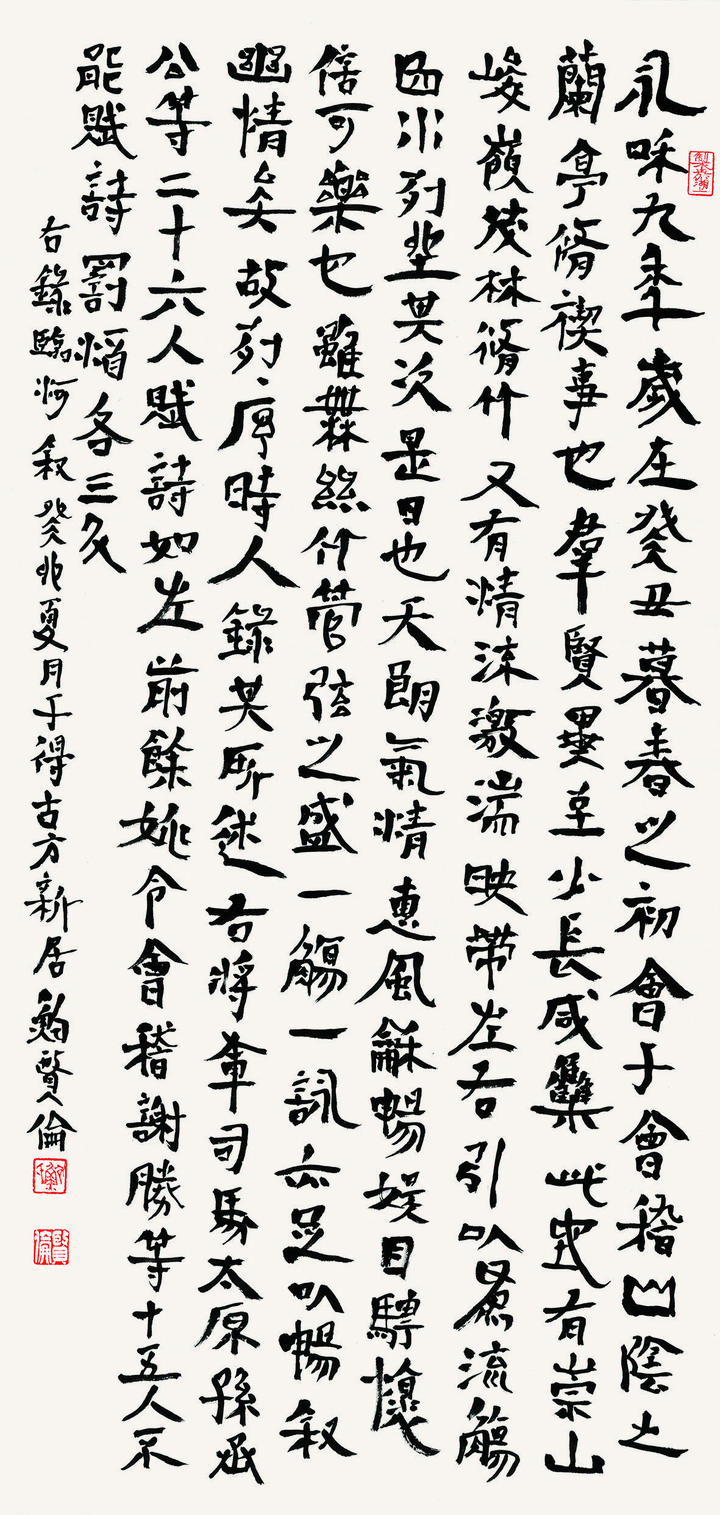 永咊九年歲在癸丑暮春之初會于會稽山陰之
蘭亭脩禊事也羣賢畢至少長咸集此地有崇山
峻嶺茂林脩竹又有清流激湍映帶左右引以爲流觴
曲水列坐其次是日也天朗氣清惠風龢暢娛目騁懷
信可樂也雖無絲竹管弦之盛一觴一詠亦足以暢叙
幽情矣故列序時人錄其所述右將軍司馬太原孫丞
公等二十六人賦詩如左前餘姚令會稽謝勝等十五人不
能賦詩罰酒各三斗
右錄臨河叙癸卯夏月于得古方新居賢倫
賢倫